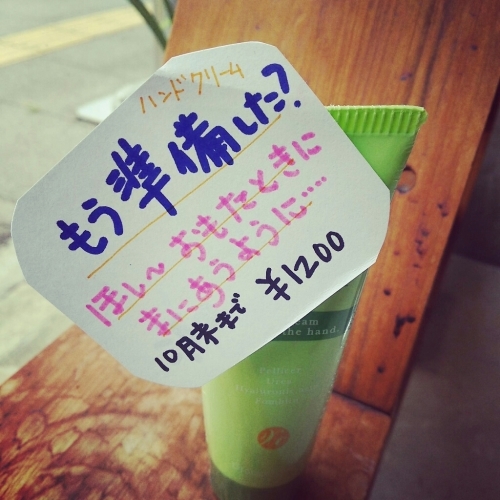 ハンドクリーム
もう準備した?
ほし〜おもたときに
まにあうように....
10月末まで ¥1200
cream
the hand.